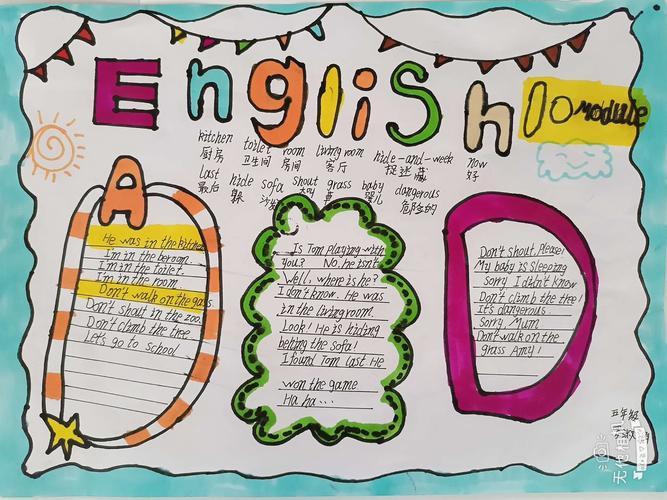 English 10 Module
kitchen toilet room living room hide-and-week now
厨房 卫生间 房间 客厅 捉迷藏 好
last hide sofa shout grass baby dangerous
最后 躲 沙发 大叫 草 婴儿 危险的
A
He was in the kitchen
I'm in the beroon.
I'm in the toilet.
I'm in the room
Don't walk on the gass.
Don't shout in the zoo.
Don't climb the tree
Let's go to school
Is Tom playing with
you? No. he isn't.
Well, where is he?
I don't know. He was
in the living room.
Look! He is hiding
behing the sofa!
I found Tom last He
won the game
Ha ha...
Don't shout, Please!
My baby is sleeping
Sorry I didn't know
Don't climb the tree!
It's dangerous.
Sorry Mum
Don't walk on the
grass Amy!
五年级
无他相机